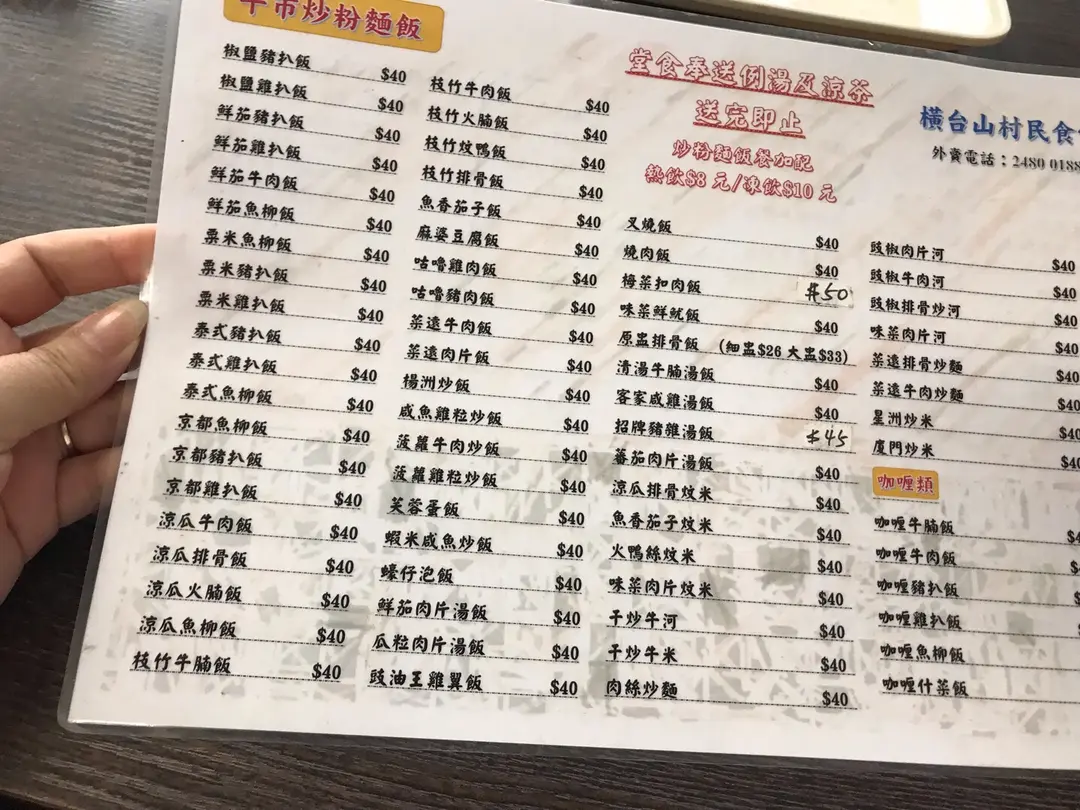 午市炒粉麵飯
椒鹽豬扒飯 $40
椒鹽雞扒飯 $40
鮮茄豬扒飯 $40
鮮茄雞扒飯 $40
鮮茄牛肉飯 $40
鮮茄魚柳飯 $40
粟米魚柳飯 $40
粟米豬扒飯 $40
粟米雞扒飯 $40
泰式豬扒飯 $40
泰式雞扒飯 $40
泰式魚柳飯 $40
京都魚柳飯 $40
京都豬扒飯 $40
京都雞扒飯 $40
涼瓜牛肉飯 $40
涼瓜排骨飯 $40
涼瓜火腩飯 $40
涼瓜魚柳飯 $40
枝竹牛腩飯 $40
枝竹牛肉飯 $40
枝竹火腩飯 $40
枝竹炆鴨飯 $40
枝竹排骨飯 $40
魚香茄子飯 $40
麻婆豆腐飯 $40
咕嚕雞肉飯 $40
咕嚕豬肉飯 $40
菜遠牛肉飯 $40
菜遠肉片飯 $40
楊洲炒飯 $40
咸魚雞粒炒飯 $40
菠蘿牛肉炒飯 $40
菠蘿雞粒炒飯 $40
芙蓉蛋飯 $40
蝦米咸魚炒飯 $40
蠔仔泡飯 $40
鮮茄肉片湯飯 $40
瓜粒肉片湯飯 $40
豉油王雞翼飯 $40
堂食奉送例湯及涼茶
送完即止
炒粉麵飯餐加配
熱飲$8 元/凍飲$10 元
叉燒飯 $40
燒肉飯 $40
梅菜扣肉飯 $50
味菜鮮魷飯 $40
原盅排骨飯 (細盅$26 大盅$33)
清湯牛腩湯飯 $40
客家咸雞湯飯 $40
招牌豬雜湯飯 $45
蕃茄肉片湯飯 $40
涼瓜排骨炆米 $40
魚香茄子炆米 $40
火鴨絲炆米 $40
味菜肉片炆米 $40
干炒牛河 $40
干炒牛米 $40
肉絲炒麵 $40
橫台山村民食
外賣電話：2480 0188
豉椒肉片河 $40
豉椒牛肉河 $40
豉椒排骨炒河 $40
味菜肉片河 $40
菜遠排骨炒麵 $40
菜遠牛肉炒麵 $40
星洲炒米 $40
廈門炒米 $40
咖喱類
咖喱牛腩飯
咖喱牛肉飯
咖喱豬扒飯
咖喱雞扒飯
咖喱魚柳飯
咖喱什菜飯